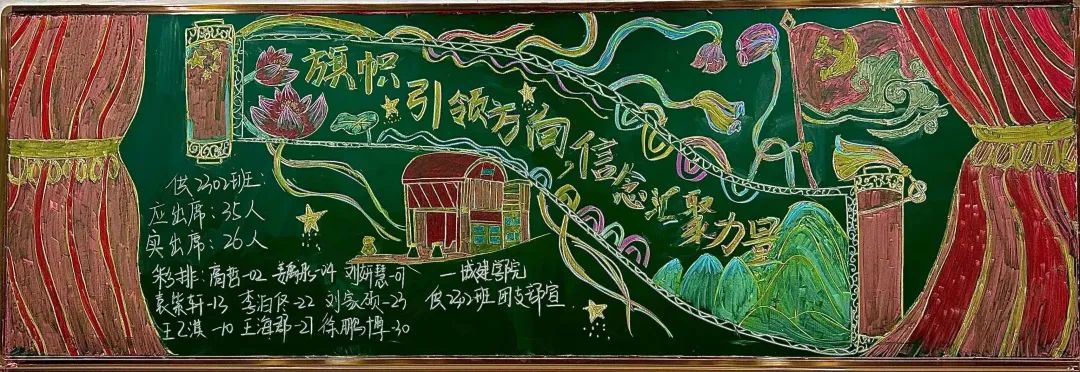 旗帜引领方向,信念汇聚力量
供2302班:
应出席:35人
实出席:26人
彩排:高哲-02 -04 刘妍慧-01
袁紫轩-13 李泊俊-22 刘家硕-23
王乙淇-10 王海郡-21 徐鹏博-30
—城建学院
供2302班团支部宣